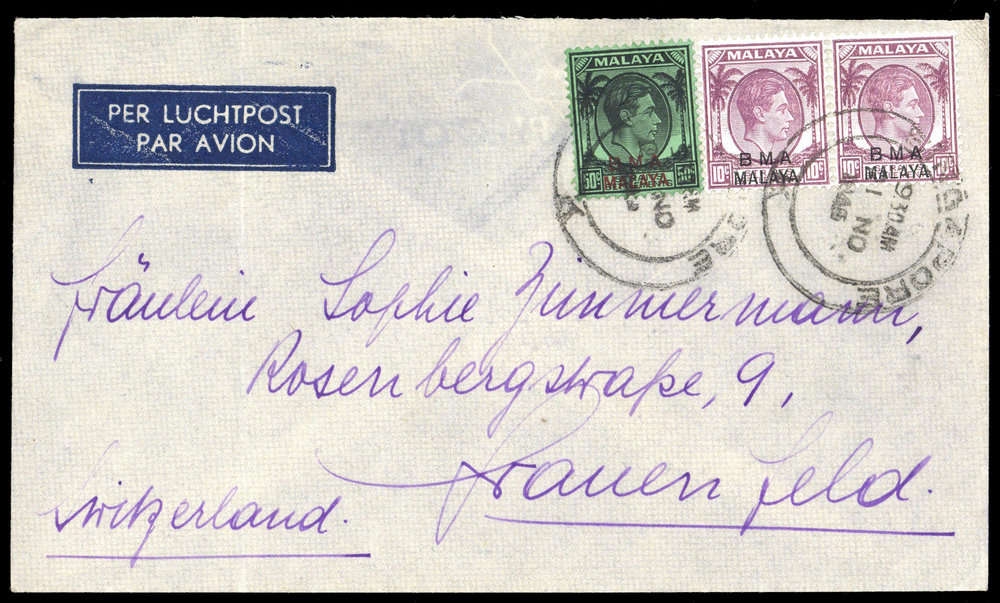 PER LUCHTPOST
PAR AVION
MALAYA
50c 50c
BMA
MALAYA
MALAYA
10c 10c
BMA
MALAYA
MALAYA
10c 10c
BMA
MALAYA
9.30 AM
1 NO
Fräulein Sophie Zimmermann,
Rosenbergstraße, 9,
Frauenfeld.
Switzerland.